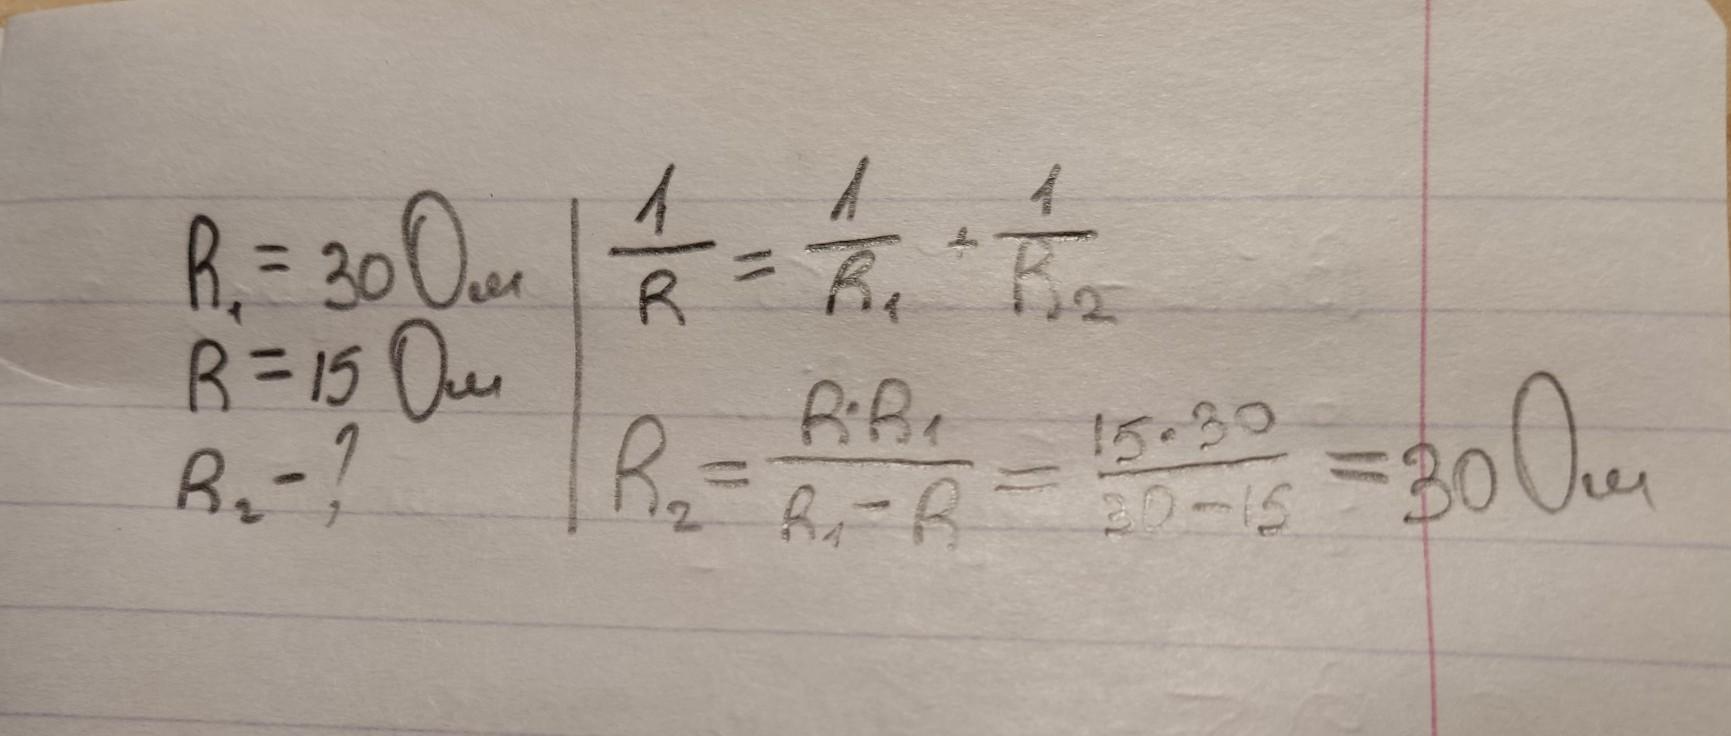 R₁ = 30 Ом
R = 15 Ом
R₂ - ?
1/R = 1/R₁ + 1/R₂
R₂ = R·R₁/R₁-R = 15·30/30-15 = 30 Ом